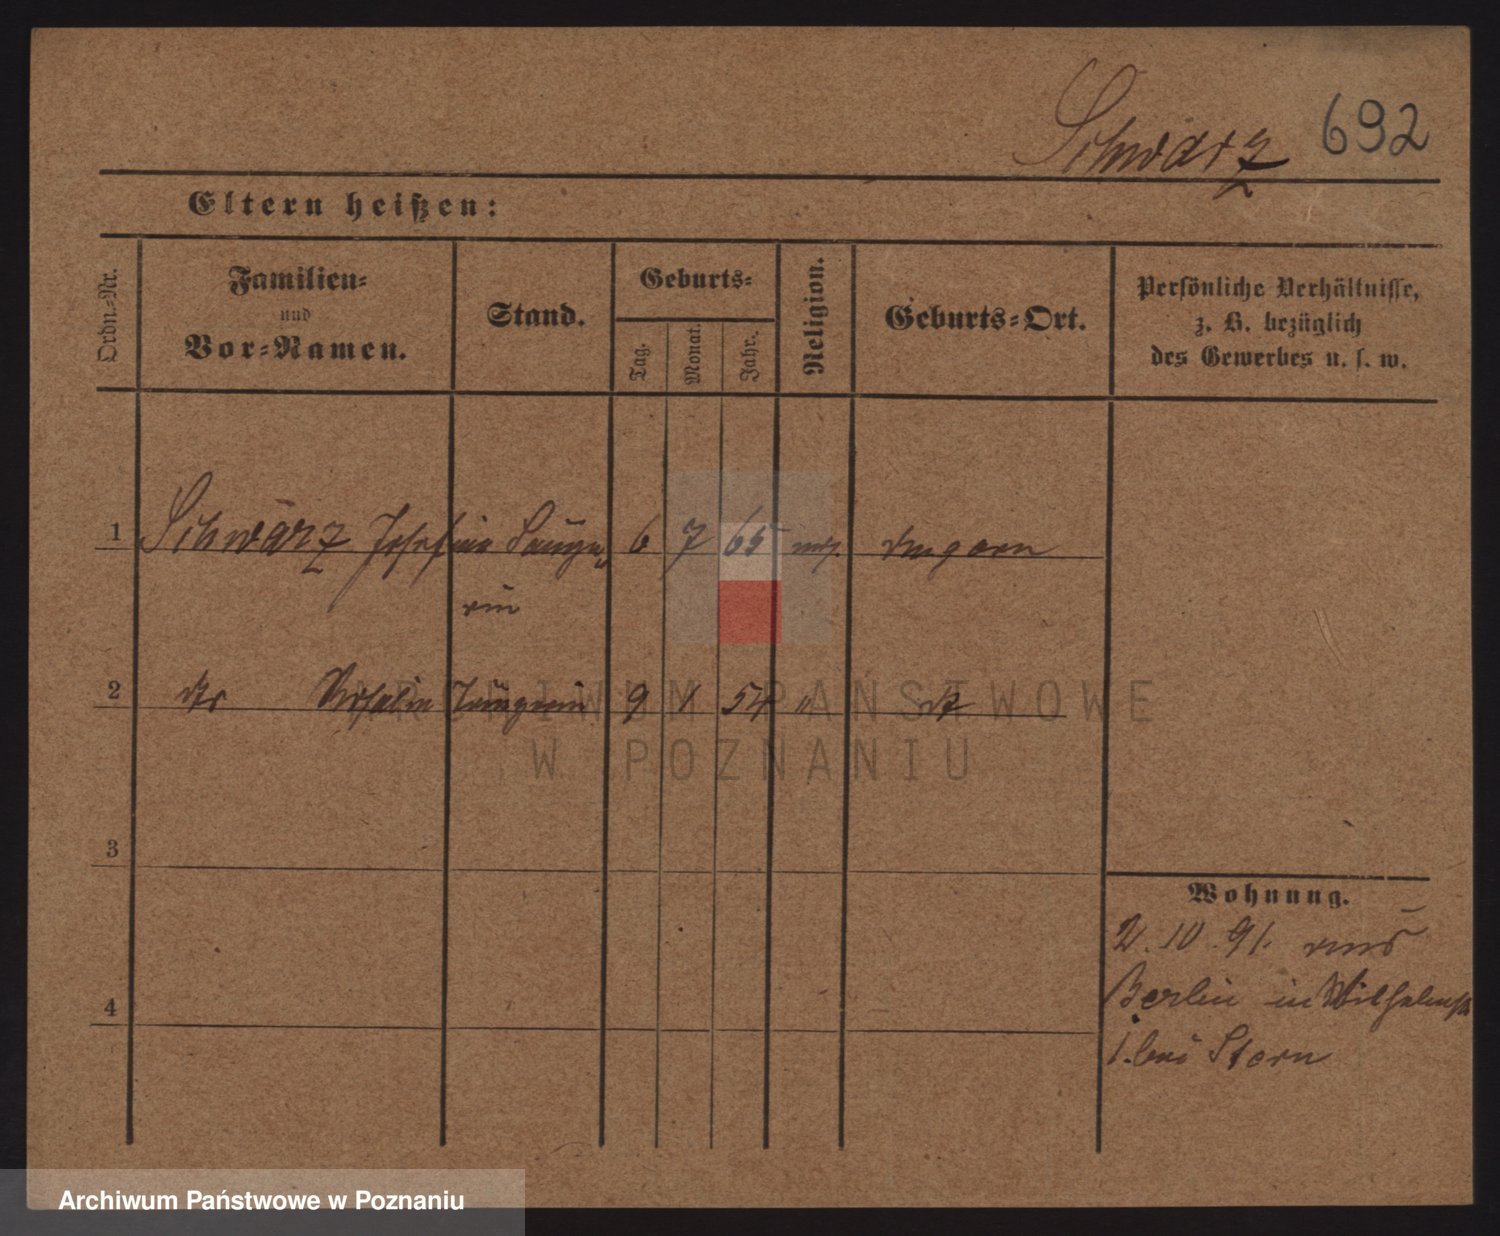 Schwarz 692
Eltern heißen:
Ordn.-Nr.
Familien-
und
Vor-Namen.
Stand.
Geburts-
Tag.
Monat.
Jahr.
Religion.
Geburts-Ort.
Persönliche Verhältnisse,
z. B. bezüglich
des Gewerbes u. s. w.
1 Schwarz Josefine Sänge- 6 7 65 Ungarn
rin
2 dto Sängerin 9 1 54 " dt
3
4
Wohnung.
2.10.91. aus
Berlin in Wilhelmstr
1. bei Stern
ARCHIWUM PAŃSTWOWE
W POZNANIU
Archiwum Państwowe w Poznaniu